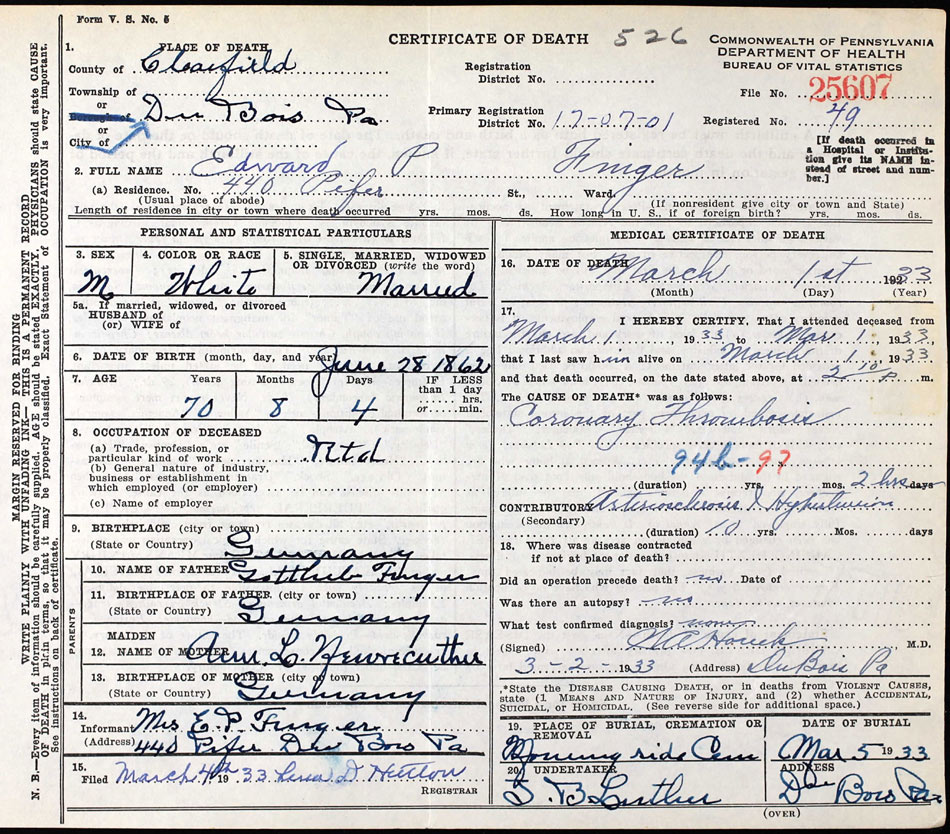 Form V. S. No. 5
CERTIFICATE OF DEATH 526
COMMONWEALTH OF PENNSYLVANIA
DEPARTMENT OF HEALTH
BUREAU OF VITAL STATISTICS
1. PLACE OF DEATH
County of Clearfield
Township of
or
Borough of Du Bois Pa
or
City of
Registration
District No.
Primary Registration
District No. 17-07-01
File No. 25607
Registered No. 49
[If death occurred in
a Hospital or Institu-
tion give its NAME in-
stead of street and num-
ber.]
2. FULL NAME Edward P Finger
(a) Residence. No. 440 Pifer St., Ward.
(Usual place of abode) (If nonresident give city or town and State)
Length of residence in city or town where death occurred yrs. mos. ds. How long in U. S., if of foreign birth? yrs. mos. ds.
PERSONAL AND STATISTICAL PARTICULARS
3. SEX 4. COLOR OR RACE 5. SINGLE, MARRIED, WIDOWED
OR DIVORCED (write the word)
M White Married
5a. If married, widowed, or divorced
HUSBAND of
(or) WIFE of
6. DATE OF BIRTH (month, day, and year) June 28 1862
7. AGE Years Months Days IF LESS
than 1 day
hrs.
or min.
70 8 4
8. OCCUPATION OF DECEASED
(a) Trade, profession, or
particular kind of work Rtd
(b) General nature of industry,
business or establishment in
which employed (or employer)
(c) Name of employer
9. BIRTHPLACE (city or town)
(State or Country) Germany
PARENTS
10. NAME OF FATHER Gottlieb Finger
11. BIRTHPLACE OF FATHER (city or town)
(State or Country) Germany
MAIDEN
12. NAME OF MOTHER L.
13. BIRTHPLACE OF MOTHER (city or town)
(State or Country) Germany
14. Informant Mrs E. P. Finger
(Address) 440 Pifer Du Bois Pa
15. Filed March 4th 1933 D. Hutton
REGISTRAR
MEDICAL CERTIFICATE OF DEATH
16. DATE OF DEATH March 1st 1933
(Month) (Day) (Year)
17. I HEREBY CERTIFY, That I attended deceased from
March 1, 1933 to Mar 1, 1933
that I last saw him alive on March 1, 1933
and that death occurred, on the date stated above, at 3 10 P m.
The CAUSE OF DEATH* was as follows:
Coronary Thrombosis
94b-97
(duration) yrs. mos. 2 hrs days
CONTRIBUTORY Arteriosclerosis & Hypertension
(Secondary)
(duration) 10 yrs. Mos. days
18. Where was disease contracted
if not at place of death?
Did an operation precede death? no Date of
Was there an autopsy? no
What test confirmed diagnosis? none
(Signed) M.D.
3-2-1933 (Address) DuBois Pa
*State the DISEASE CAUSING DEATH, or in deaths from VIOLENT CAUSES,
state (1) MEANS AND NATURE OF INJURY, and (2) whether ACCIDENTAL,
SUICIDAL, or HOMICIDAL. (See reverse side for additional space.)
19. PLACE OF BURIAL, CREMATION OR
REMOVAL
Morningside Cem
DATE OF BURIAL
Mar 5 1933
20. UNDERTAKER
B Luther
ADDRESS
Du Bois Pa
(OVER)
MARGIN RESERVED FOR BINDING
WRITE PLAINLY WITH UNFADING INK—THIS IS A PERMANENT RECORD
N. B.—Every item of information should be carefully supplied. AGE should be stated EXACTLY. PHYSICIANS should state CAUSE
OF DEATH in plain terms, so that it may be properly classified. Exact Statement of OCCUPATION is very important.
See instructions on back of certificate.